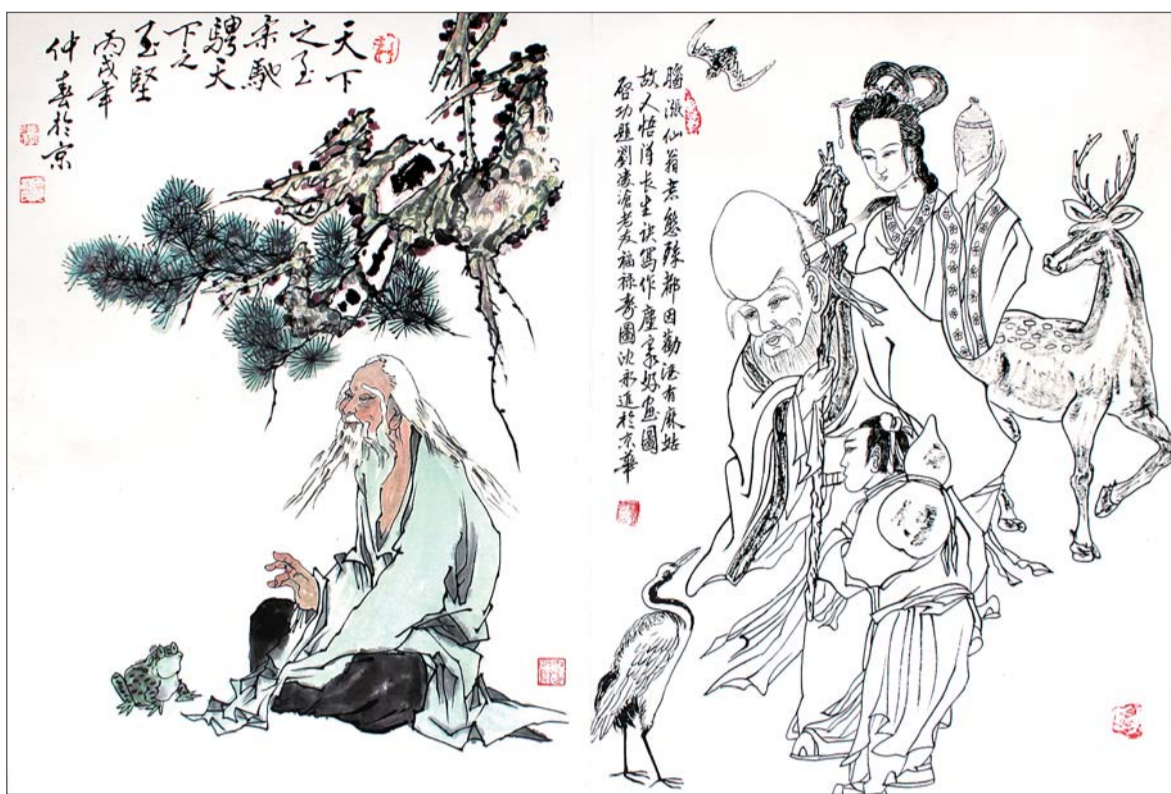 天下
之至
柔馳
騁天
下之
至堅
丙戌年
仲春於京
腦漲仙翁老態殊都因勸酒有麻姑
故人悟得長生訣寫作塵寰好画圖
啓功題劉凌滄老友福禄寿圖沈永進於京華